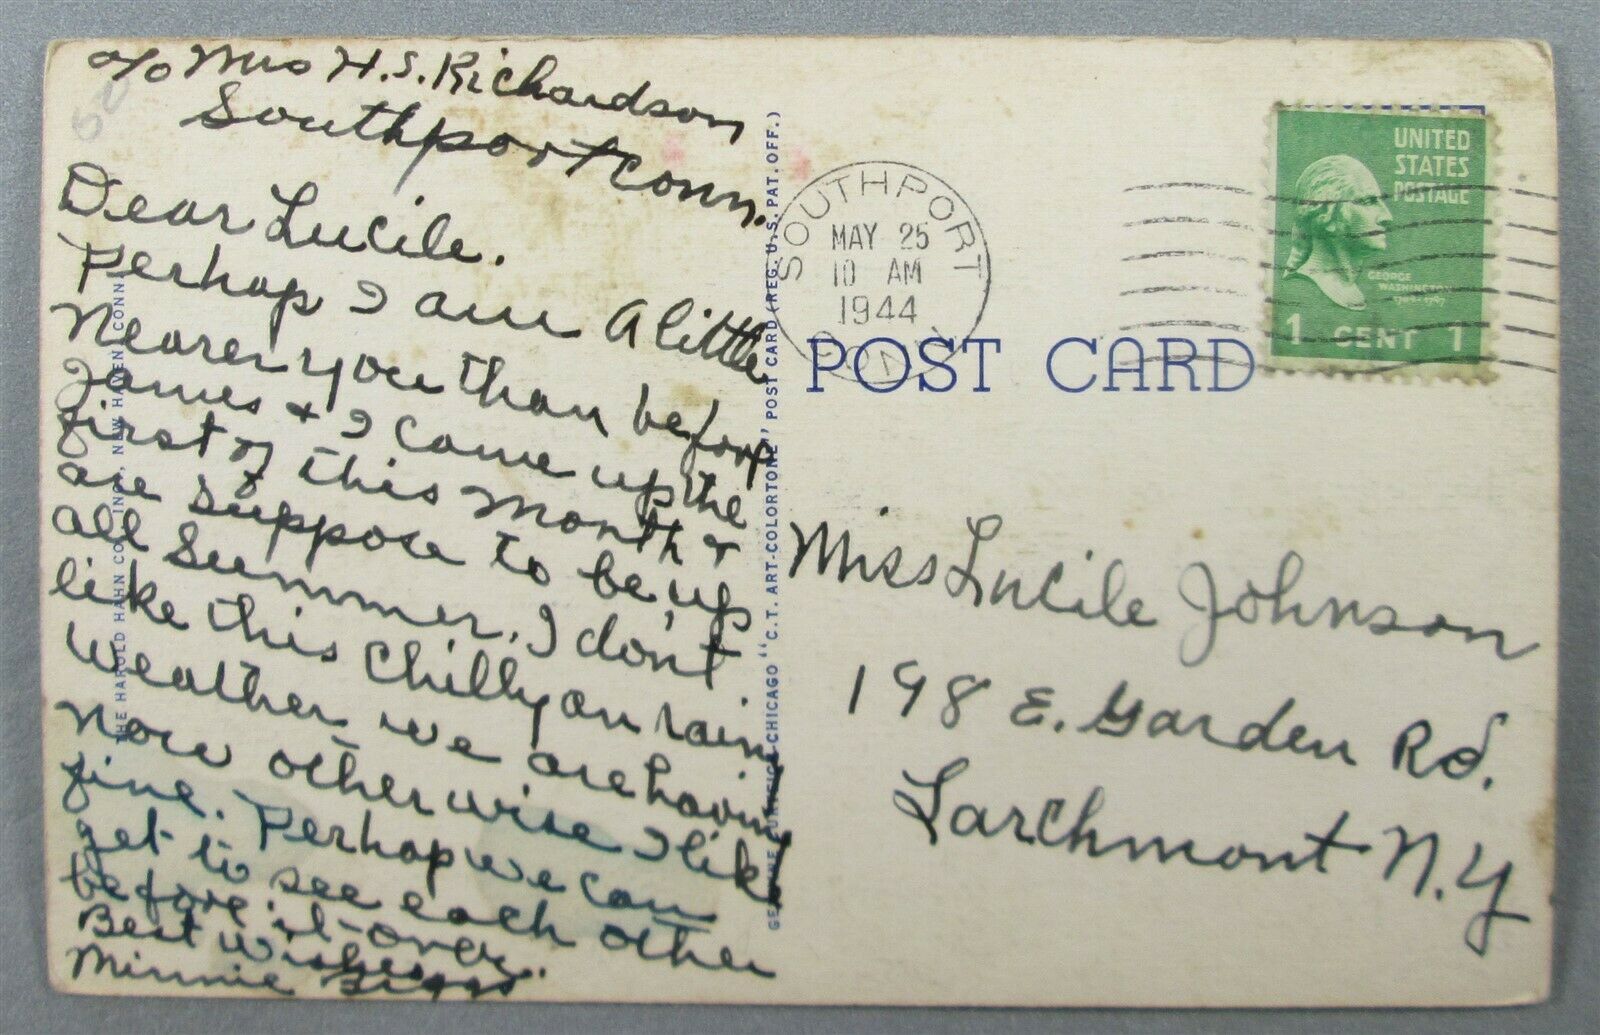 c/o Mrs H.S. Richardson
Southport Conn.
Dear Lucile.
Perhap I am a little
Nearer you than before
James & I came up the
first of this month &
are suppose to be up
all Summer, I don't
like this Chilly an rainy
weather we are having
now otherwise I like
fine. Perhap we can
get to see each other
before it over.
Best wishes
Minnie Biggs
THE HAROLD HAHN CO., INC., NEW HAVEN, CONN.
CURTEICH-CHICAGO "C.T. ART-COLORTONE" POST CARD (REG. U.S. PAT. OFF.)
SOUTHPORT
MAY 25
10 AM
1944
CONN.
UNITED
STATES
POSTAGE
GEORGE
WASHINGTON
1789-1797
1 CENT 1
POST CARD
Miss Lucile Johnson
198 E. Garden Rd.
Larchmont N.Y